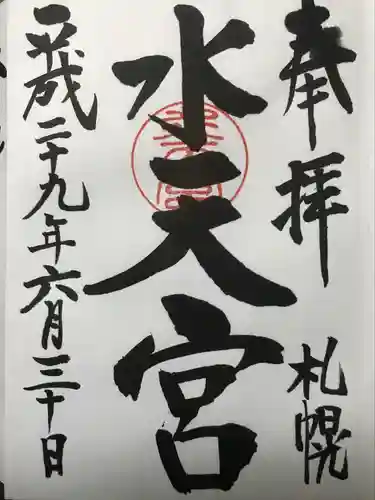 奉拝
札幌
水天宮
平成二十九年六月三十日